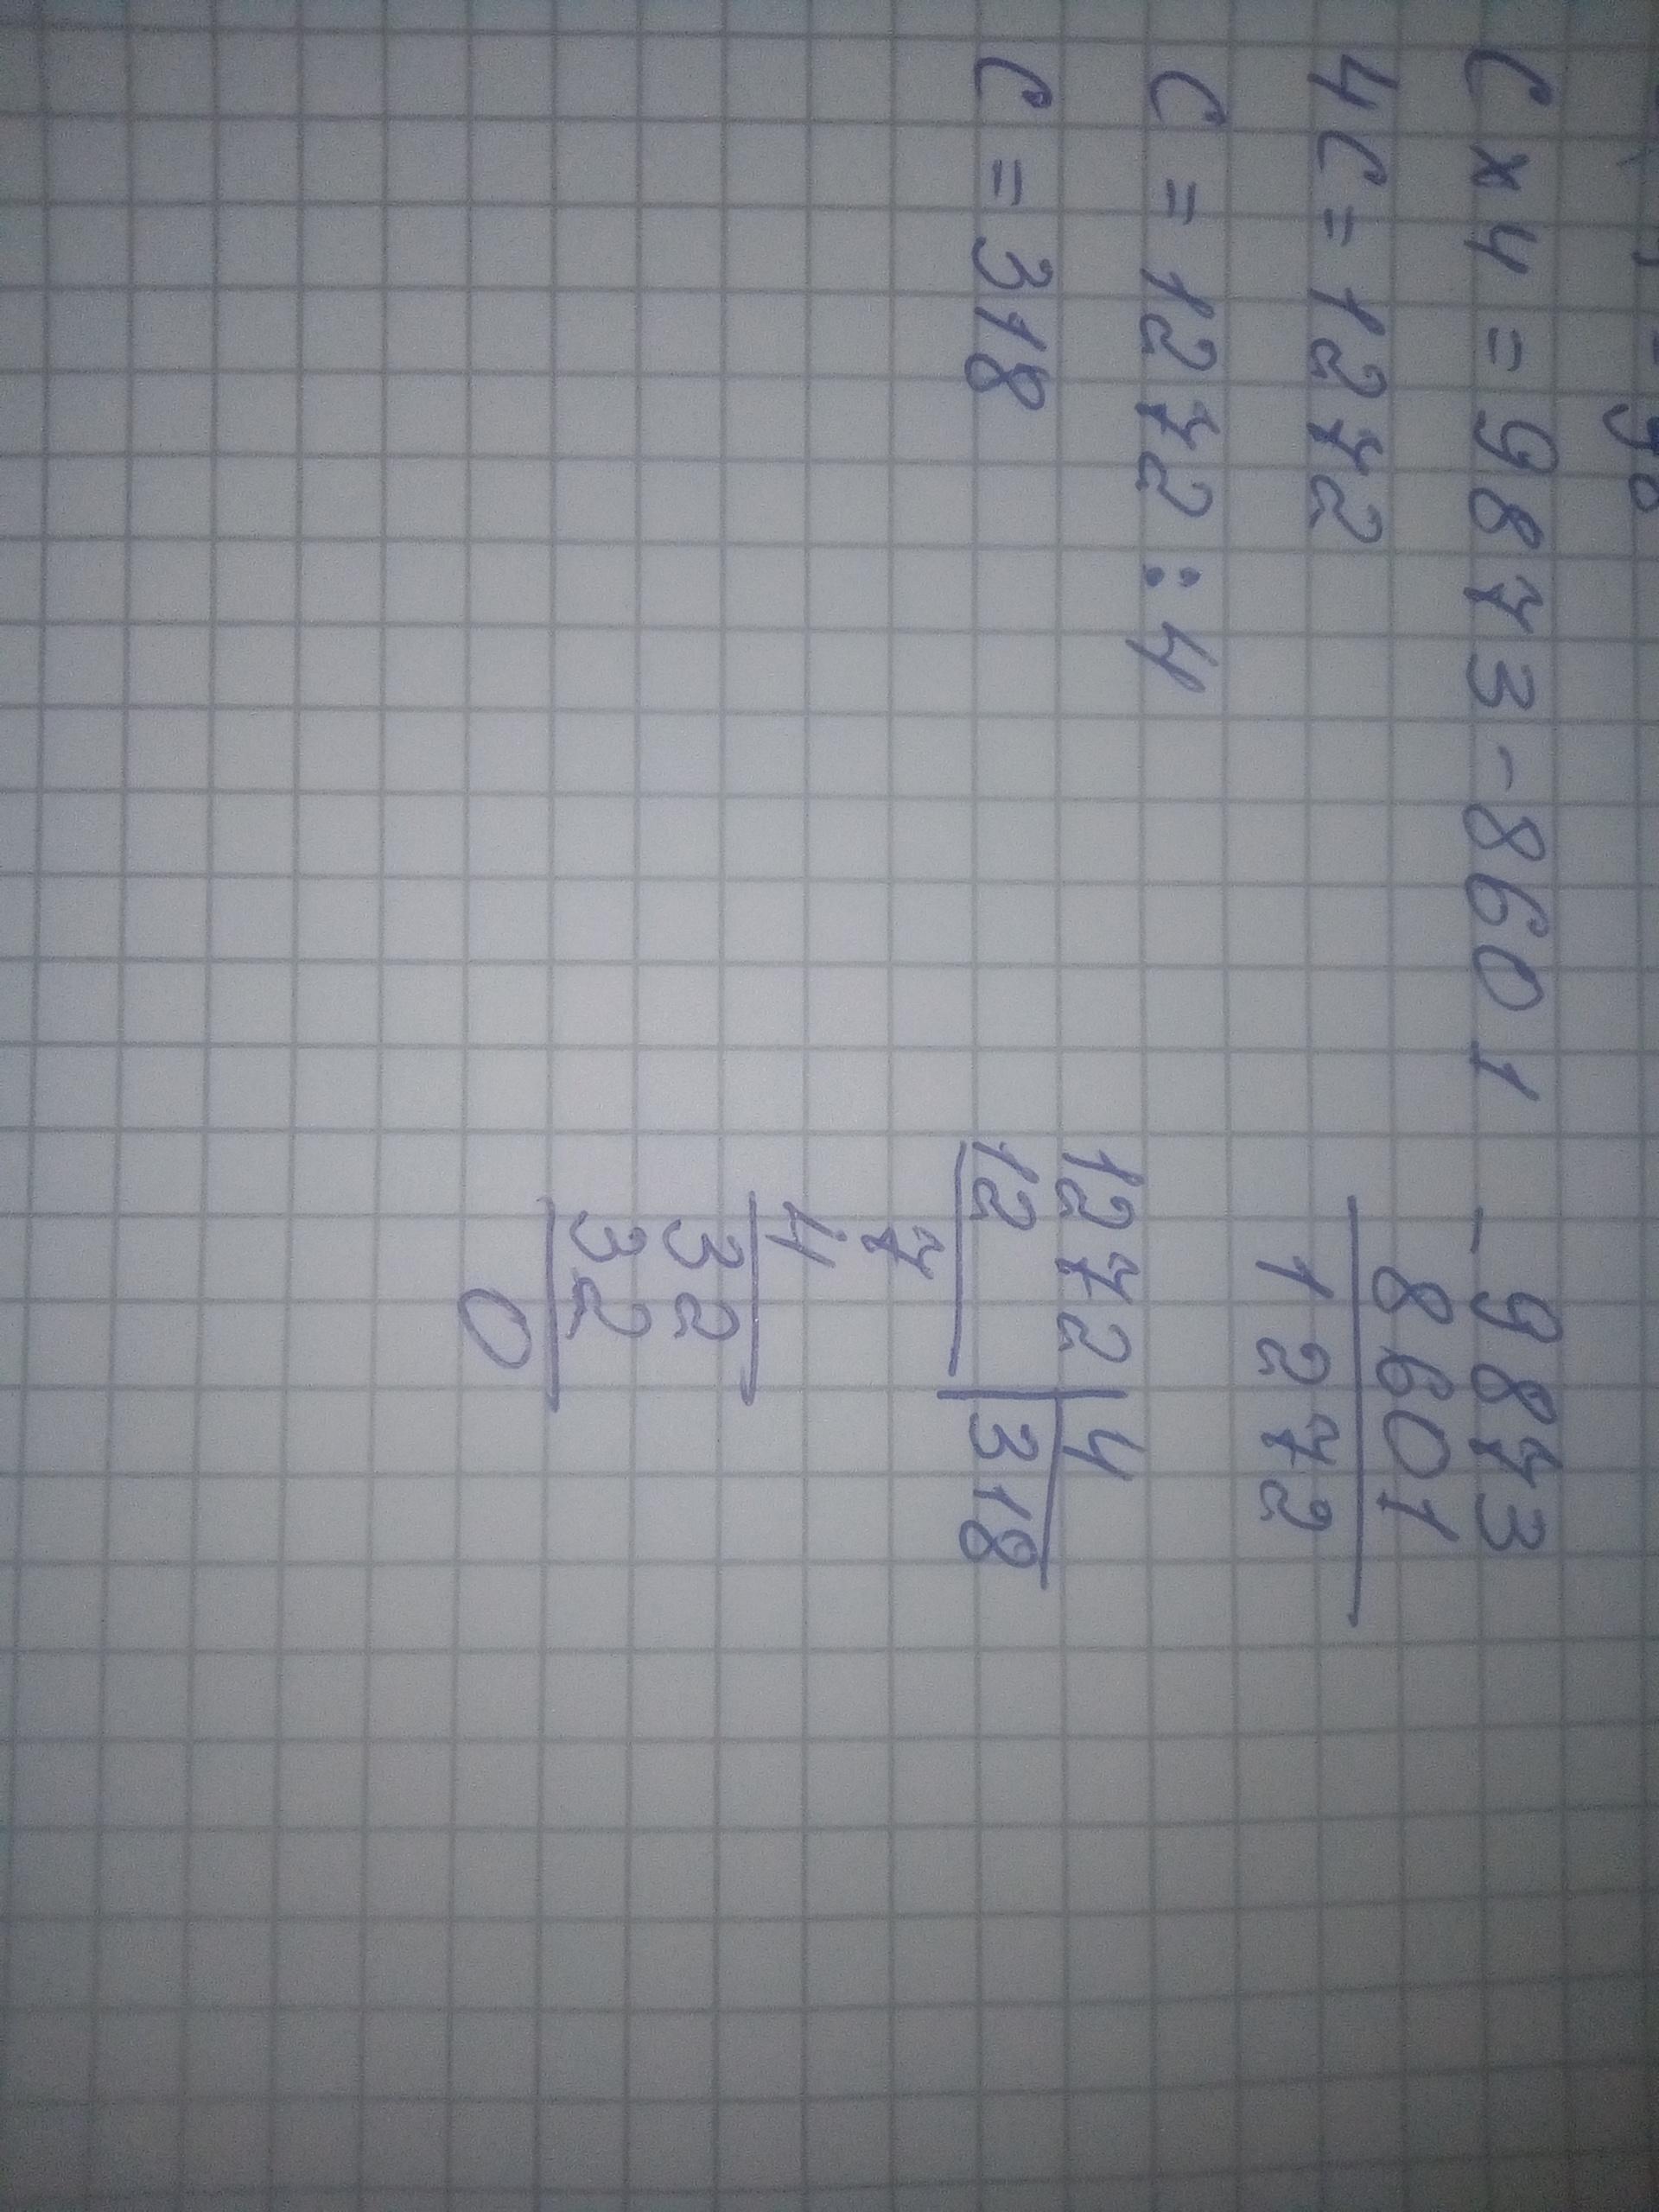 C x 4 = 9873 - 8601
4C = 1272
C = 1272 : 4
C = 318
- 9873
8601
1272
1272 | 4
12 | 318
7
4
32
32
0